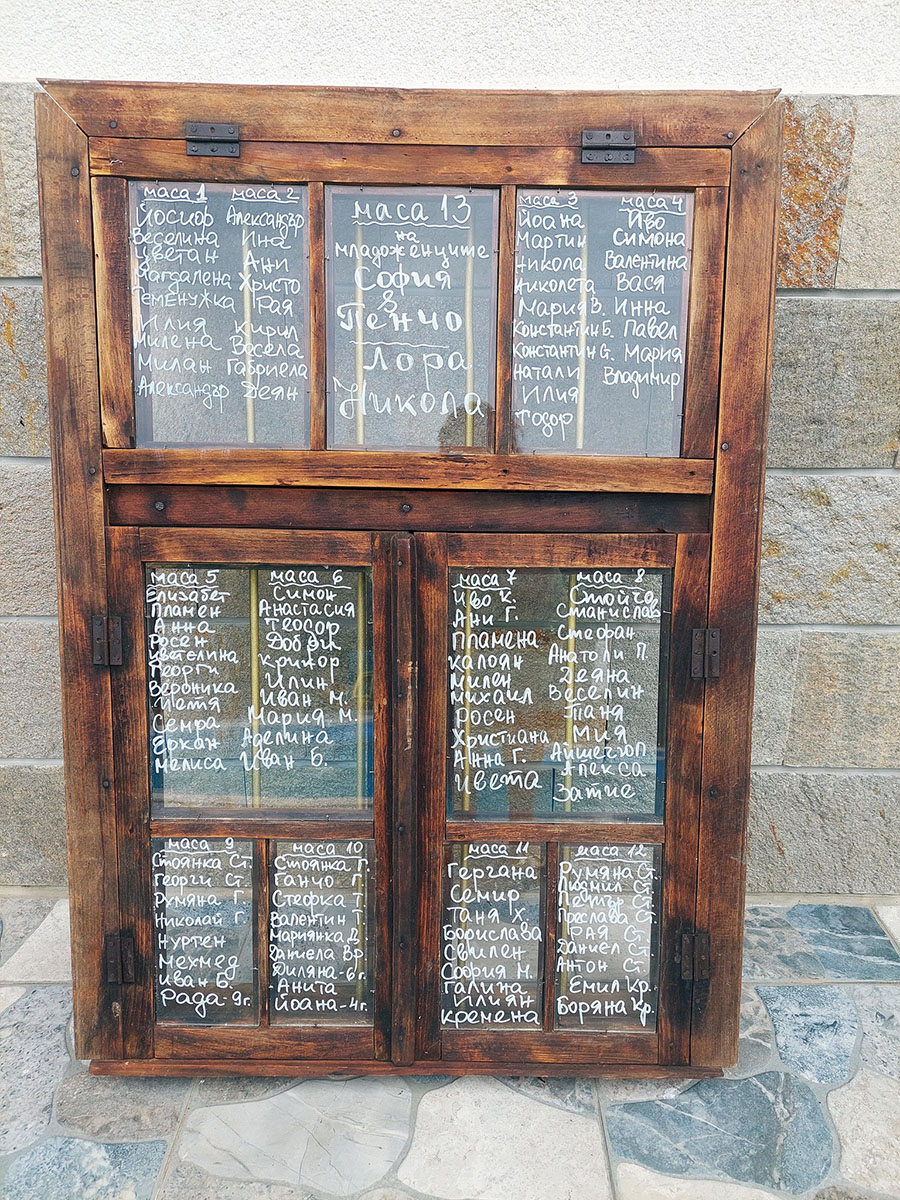 маса 1
Йосиф
Веселина
Цветан
Магдалена
Теменужка
Илия
Милена
Милан
Александър
маса 2
Александър
Ина
Ани
Христо
Рая
Кирил
Весела
Габриела
Деян
маса 13
на
младоженците
София
&
Пенчо
Лора
Никола
маса 3
Йоана
Мартин
Никола
Николета
Мария В.
Константин Б.
Константин С.
Натали
Илия
Тодор
маса 4
Иво
Симона
Валентина
Вася
Инна
Павел
Мария
Владимир
маса 5
Елизабет
Пламен
Анна
Росен
Цветелина
Георги
Вероника
Петя
Семра
Еркан
Мелиса
маса 6
Симон
Анастасия
Теодор
Добри
Крикор
Илин
Иван М.
Мария М.
Аделина
Иван Б.
маса 7
Иво К.
Ани Г.
Пламена
Калоян
Милен
Михаил
Росен
Християна
Анна Г.
Цвета
маса 8
Стойчо
Станислав
Стефан
Анатоли П.
Деяна
Веселин
Таня
Мия
Айшегюл
Алекса
Затие
маса 9
Стоянка Ст.
Георги Ст.
Румяна Г.
Николай Г.
Нуртен
Мехмед
Иван Б.
Рада-9г.
маса 10
Стоянка Г.
Ганчо Г.
Стефка Т.
Валентин Т.
Мариянка Д.
Даниела Вр.
Диляна-6г.
Анита
Йоана-4г.
маса 11
Гергана
Семир
Таня Х.
Борислава
Свилен
София М.
Галина
Илиян
Кремена
маса 12
Румяна Ст.
Людмил Ст.
Петър Ст.
Преслава Ст.
Рая Ст.
Даниел Ст.
Антон Ст.
Емил Кр.
Боряна Кр.